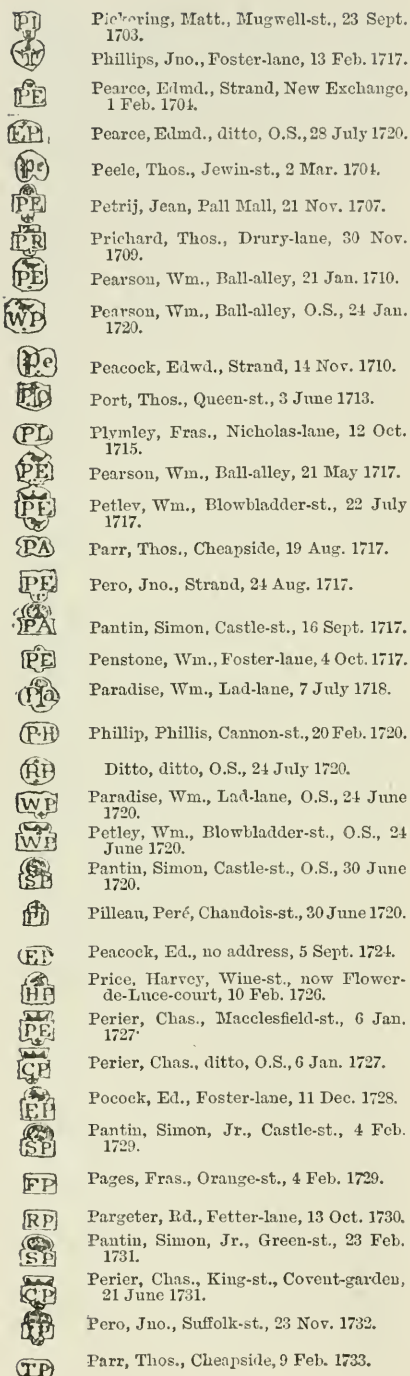 Pickering, Matt., Mugwell-st., 23 Sept.
1703.
Phillips, Jno., Foster-lane, 13 Feb. 1717.
PE Pearce, Edmd., Strand, New Exchange,
1 Feb. 1704.
EP Pearce, Edmd., ditto, O.S., 28 July 1720.
Pe Peele, Thos., Jewin-st., 2 Mar. 1704.
PE Petrij, Jean, Pall Mall, 21 Nov. 1707.
PR Prichard, Thos., Drury-lane, 30 Nov.
1709.
PE Pearson, Wm., Ball-alley, 21 Jan. 1710.
WP Pearson, Wm., Ball-alley, O.S., 24 Jan.
1720.
Pe Peacock, Edwd., Strand, 14 Nov. 1710.
Po Port, Thos., Queen-st., 3 June 1713.
PL Plymley, Fras., Nicholas-lane, 12 Oct.
1715.
PE Pearson, Wm., Ball-alley, 21 May 1717.
PE Petley, Wm., Blowbladder-st., 22 July
1717.
PA Parr, Thos., Cheapside, 19 Aug. 1717.
PE Pero, Jno., Strand, 24 Aug. 1717.
PA Pantin, Simon, Castle-st., 16 Sept. 1717.
PE Penstone, Wm., Foster-lane, 4 Oct. 1717.
Pa Paradise, Wm., Lad-lane, 7 July 1718.
P·H Phillip, Phillis, Cannon-st., 20 Feb. 1720.
Ditto, ditto, O.S., 24 July 1720.
WP Paradise, Wm., Lad-lane, O.S., 24 June
1720.
WP Petley, Wm., Blowbladder-st., O.S., 24
June 1720.
SP Pantin, Simon, Castle-st., O.S., 30 June
1720.
Pi Pilleau, Peré, Chandois-st., 30 June 1720.
EP Peacock, Ed., no address, 5 Sept. 1724.
HP Price, Harvey, Wine-st., now Flower-
de-Luce-court, 10 Feb. 1726.
PE Perier, Chas., Macclesfield-st., 6 Jan.
1727.
CP Perier, Chas., ditto, O.S., 6 Jan. 1727.
EP Pocock, Ed., Foster-lane, 11 Dec. 1728.
SP Pantin, Simon, Jr., Castle-st., 4 Feb.
1729.
FP Pages, Fras., Orange-st., 4 Feb. 1729.
RP Pargeter, Rd., Fetter-lane, 13 Oct. 1730.
SP Pantin, Simon, Jr., Green-st., 23 Feb.
1731.
CP Perier, Chas., King-st., Covent-garden,
21 June 1731.
IP Pero, Jno., Suffolk-st., 23 Nov. 1732.
TP Parr, Thos., Cheapside, 9 Feb. 1733.